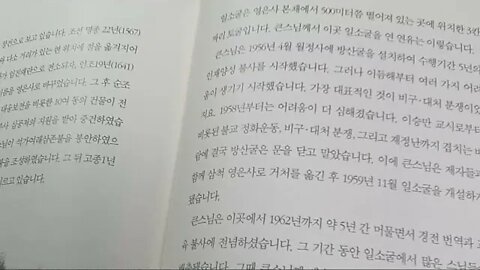 정전으로 보고 있습니다. 조선 명종 22년(1567)
다소 거리가 있는 현 위치에 절을 옮지어
임진왜란으로 전소되자, 인조19년(1641)
이름을 영은사로 바꾸었습니다. 그 후 순조
대웅보전을 비롯한 10여 동의 건물이 전
심공재의 지원을 받아 중건하였습
석가여래삼존불을 봉안하였으
조성했습니다. 그 뒤 고종1년
있습니다.
일소굴은 영은사 본채에서 500미터쯤 떨어져 있는 곳에 위치한 3칸
짜리 토굴입니다. 큰스님께서 이곳 일소굴을 연 연유는 이렇습니다.
큰스님은 1956년 4월 월정사에 방산굴을 설치하여 수행기간 5년의
인재양성 불사를 시작했습니다. 그러나 이듬해부터 여러 가지 어려
움이 생기기 시작했습니다. 가장 대표적인 것이 비구·대처 분쟁이었
지요. 1958년부터는 어려움이 더 심해졌습니다. 이승만 교시로부터
비롯된 불교 정화운동, 비구·대처 분쟁, 그리고 재정난까지 겹치는 바
람에 결국 방산굴은 문을 닫고 말았습니다. 이에 큰스님은 제자들과
함께 삼척 영은사로 거처를 옮긴 후 1959년 11월 일소굴을 개설하게
됐습니다.
큰스님은 이곳에서 1962년까지 약 5년 간 머물면서 경전 번역과 교
육 불사에 전념하셨습니다. 그 기간 동안 일소굴에서 많은 스님들이
배출됐습니다. 그때 큰스님께